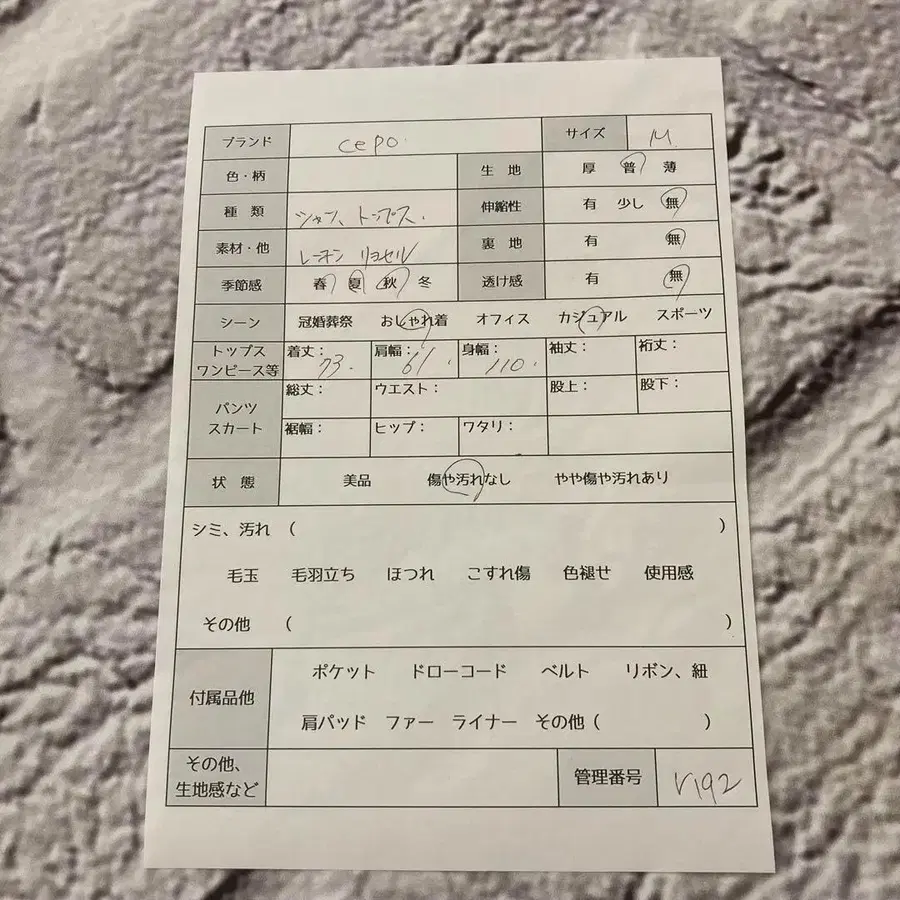 ブランド cepo. サイズ M
色・柄 生 地 厚 普 薄
種 類 シャツ、トップス. 伸縮性 有 少し 無
素材・他 レーヨン リヨセル 裏 地 有 無
季節感 春 夏 秋 冬 透け感 有 無
シーン 冠婚葬祭 おしゃれ着 オフィス カジュアル スポーツ
トップス ワンピース等 着丈： 73. 肩幅： 61. 身幅： 110. 袖丈： 裄丈：
パンツ スカート 総丈： ウエスト： 股上： 股下：
裾幅： ヒップ： ワタリ：
状 態 美品 傷や汚れなし やや傷や汚れあり
シミ、汚れ （ ）
毛玉 毛羽立ち ほつれ こすれ傷 色褪せ 使用感
その他 （ ）
付属品他 ポケット ドローコード ベルト リボン、紐
肩パッド ファー ライナー その他（ ）
その他、
生地感など 管理番号 V192